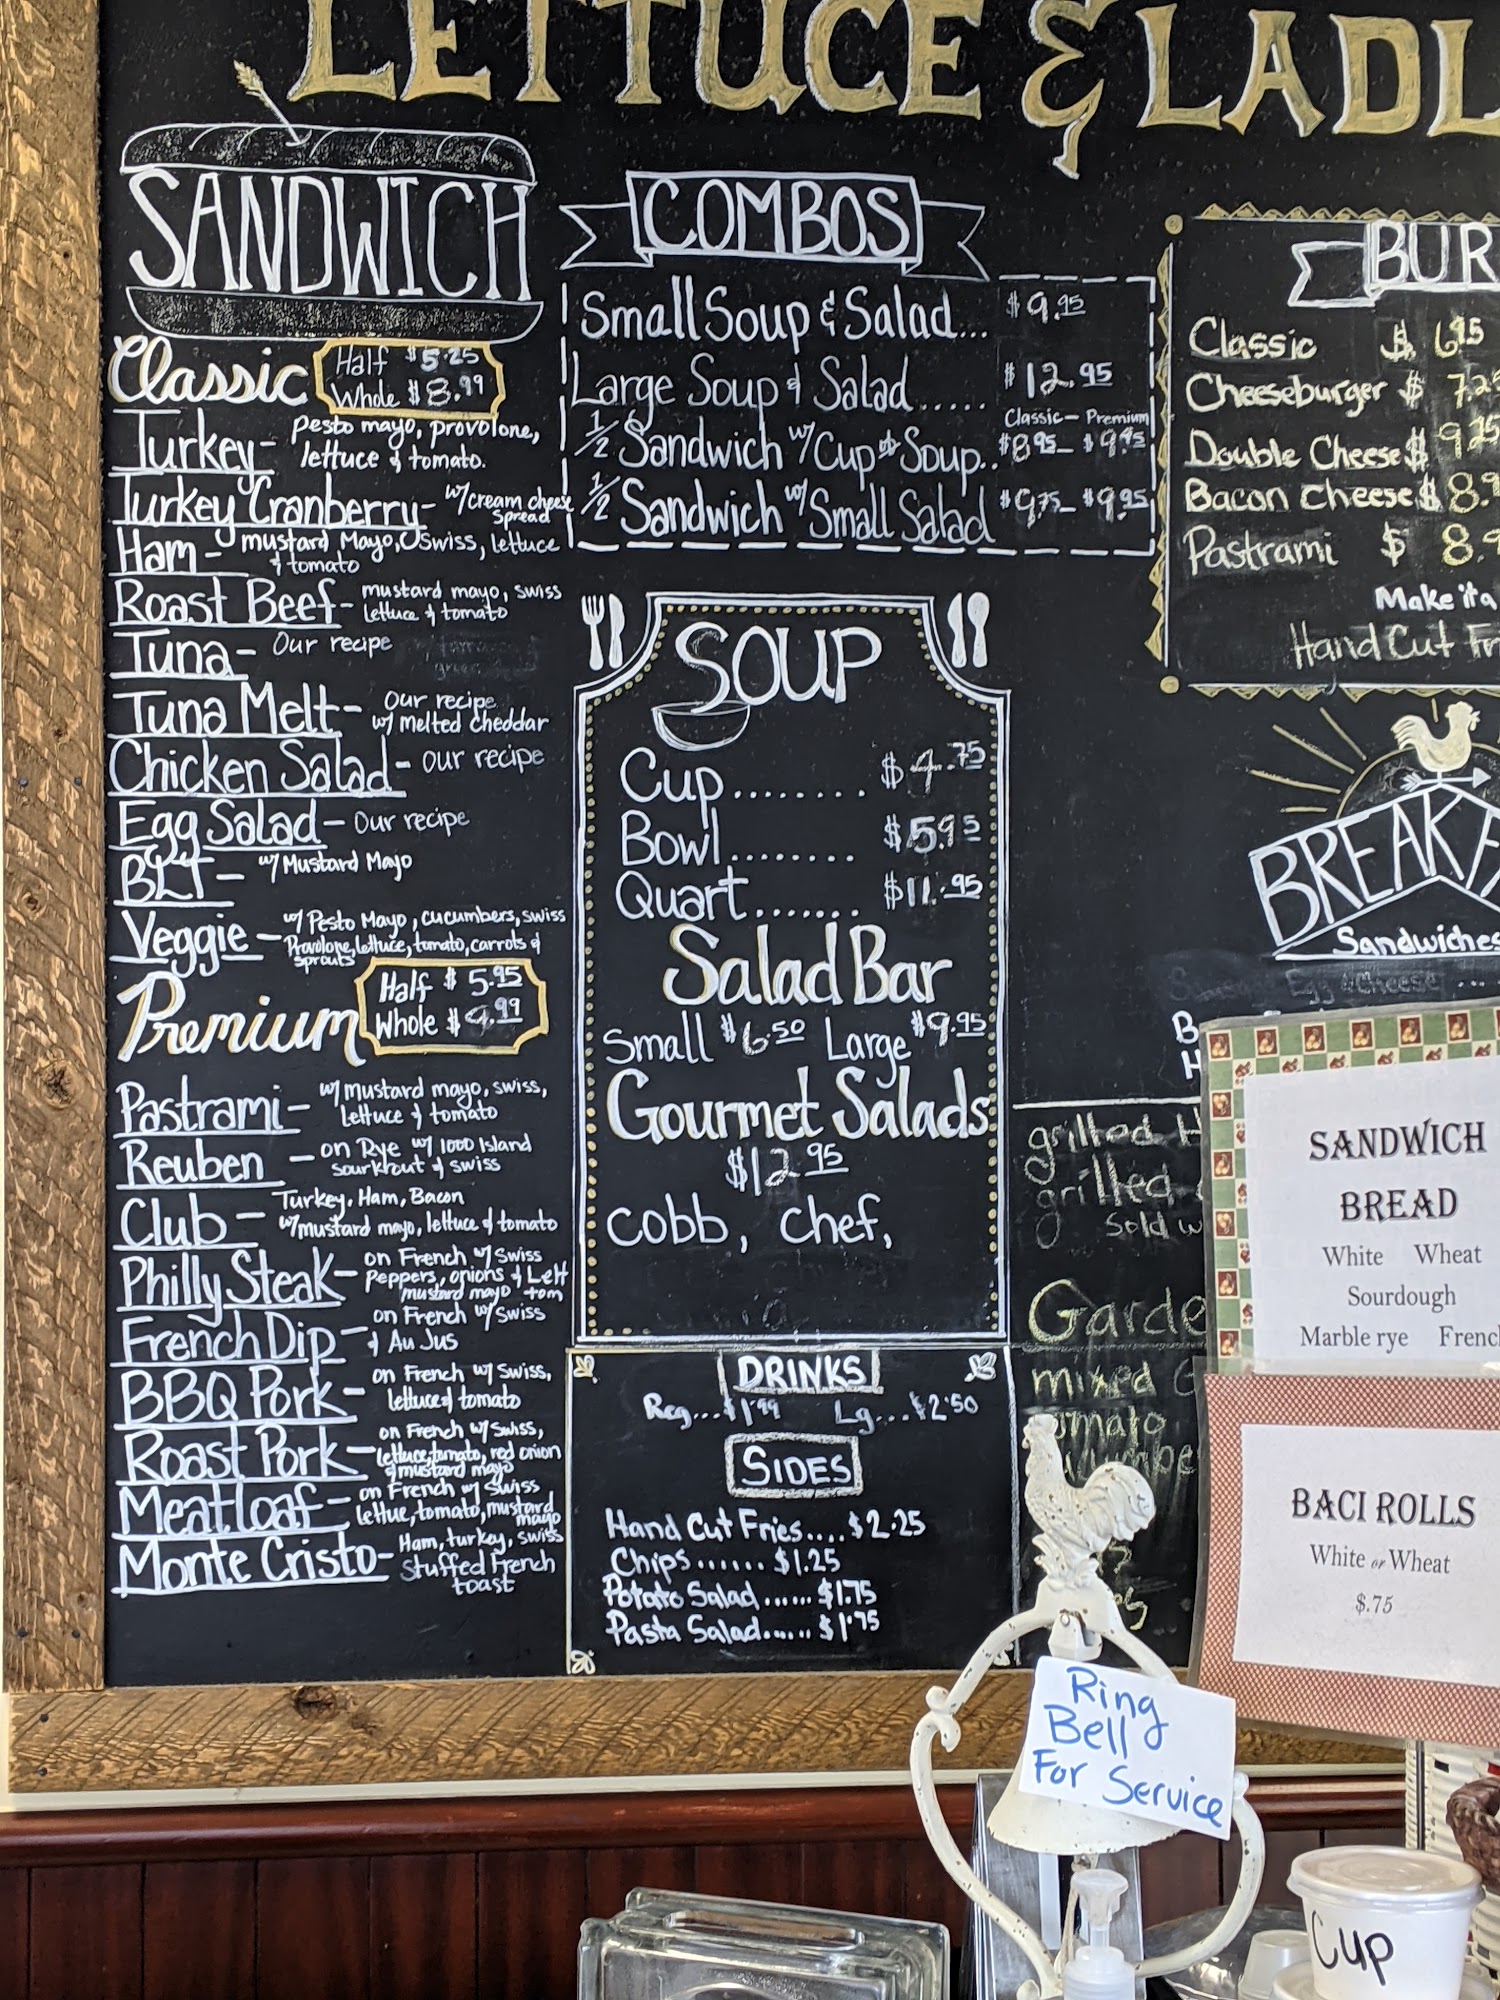 LETTUCE & LADL
SANDWICH
Classic
Half $5.25
Whole $8.99
Turkey- pesto mayo, provolone,
lettuce & tomato.
Turkey Cranberry- w/cream cheese
spread
Ham - mustard Mayo, Swiss, lettuce
& tomato
Roast Beef- mustard mayo, swiss
lettuce & tomato
Tuna- Our recipe
Tuna Melt- Our recipe
w/ melted cheddar
Chicken Salad- our recipe
Egg Salad- Our recipe
BLT- w/ Mustard Mayo
Veggie- w/ Pesto Mayo, cucumbers, swiss
Provolone, lettuce, tomato, carrots &
sprouts
Premium
Half $5.95
Whole $9.99
Pastrami- w/ mustard mayo, swiss,
lettuce & tomato
Reuben - on Rye w/ 1000 Island
sourkrout & swiss
Club- Turkey, Ham, Bacon
w/mustard mayo, lettuce & tomato
Philly Steak- on French w/ Swiss
peppers, onions & Lett
mustard mayo tom
French Dip- on French w/ Swiss
& Au Jus
BBQ Pork- on French w/ Swiss,
lettuce & tomato
Roast Pork- on French w/ Swiss,
lettuce, tomato, red onion
& mustard mayo
Meatloaf- on French w/ Swiss
lettue, tomato, mustard
mayo
Monte Cristo- Ham, turkey, swiss
Stuffed French
toast
COMBOS
Small Soup & Salad... $9.95
Large Soup & Salad..... $12.95
Classic - Premium
1/2 Sandwich w/ Cup of Soup.. $8.95- $9.95
1/2 Sandwich w/ Small Salad $9.75- $9.95
SOUP
Cup........ $4.75
Bowl........ $5.95
Quart....... $11.95
Salad Bar
Small $6.50 Large $9.95
Gourmet Salads
$12.95
Cobb, Chef,
DRINKS
Reg...$1.99 Lg...$2.50
SIDES
Hand Cut Fries.... $2.25
Chips...... $1.25
Potato Salad...... $1.75
Pasta Salad...... $1.75
BUR
Classic $6.95
Cheeseburger $7.25
Double Cheese $9.25
Bacon Cheese $8.9
Pastrami $8.9
Make it a
Hand Cut Fr
BREAKF
Sandwiches
Egg & Cheese ...
B
H
grilled H
grilled
Sold w
Garde
mixed G
tomato
SANDWICH
BREAD
White Wheat
Sourdough
Marble rye French
BACI ROLLS
White or Wheat
$.75
Ring
Bell
For Service
Cup